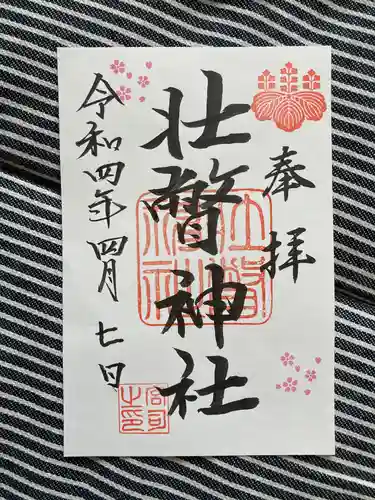 奉拝
壮瞥神社
令和四年四月七日